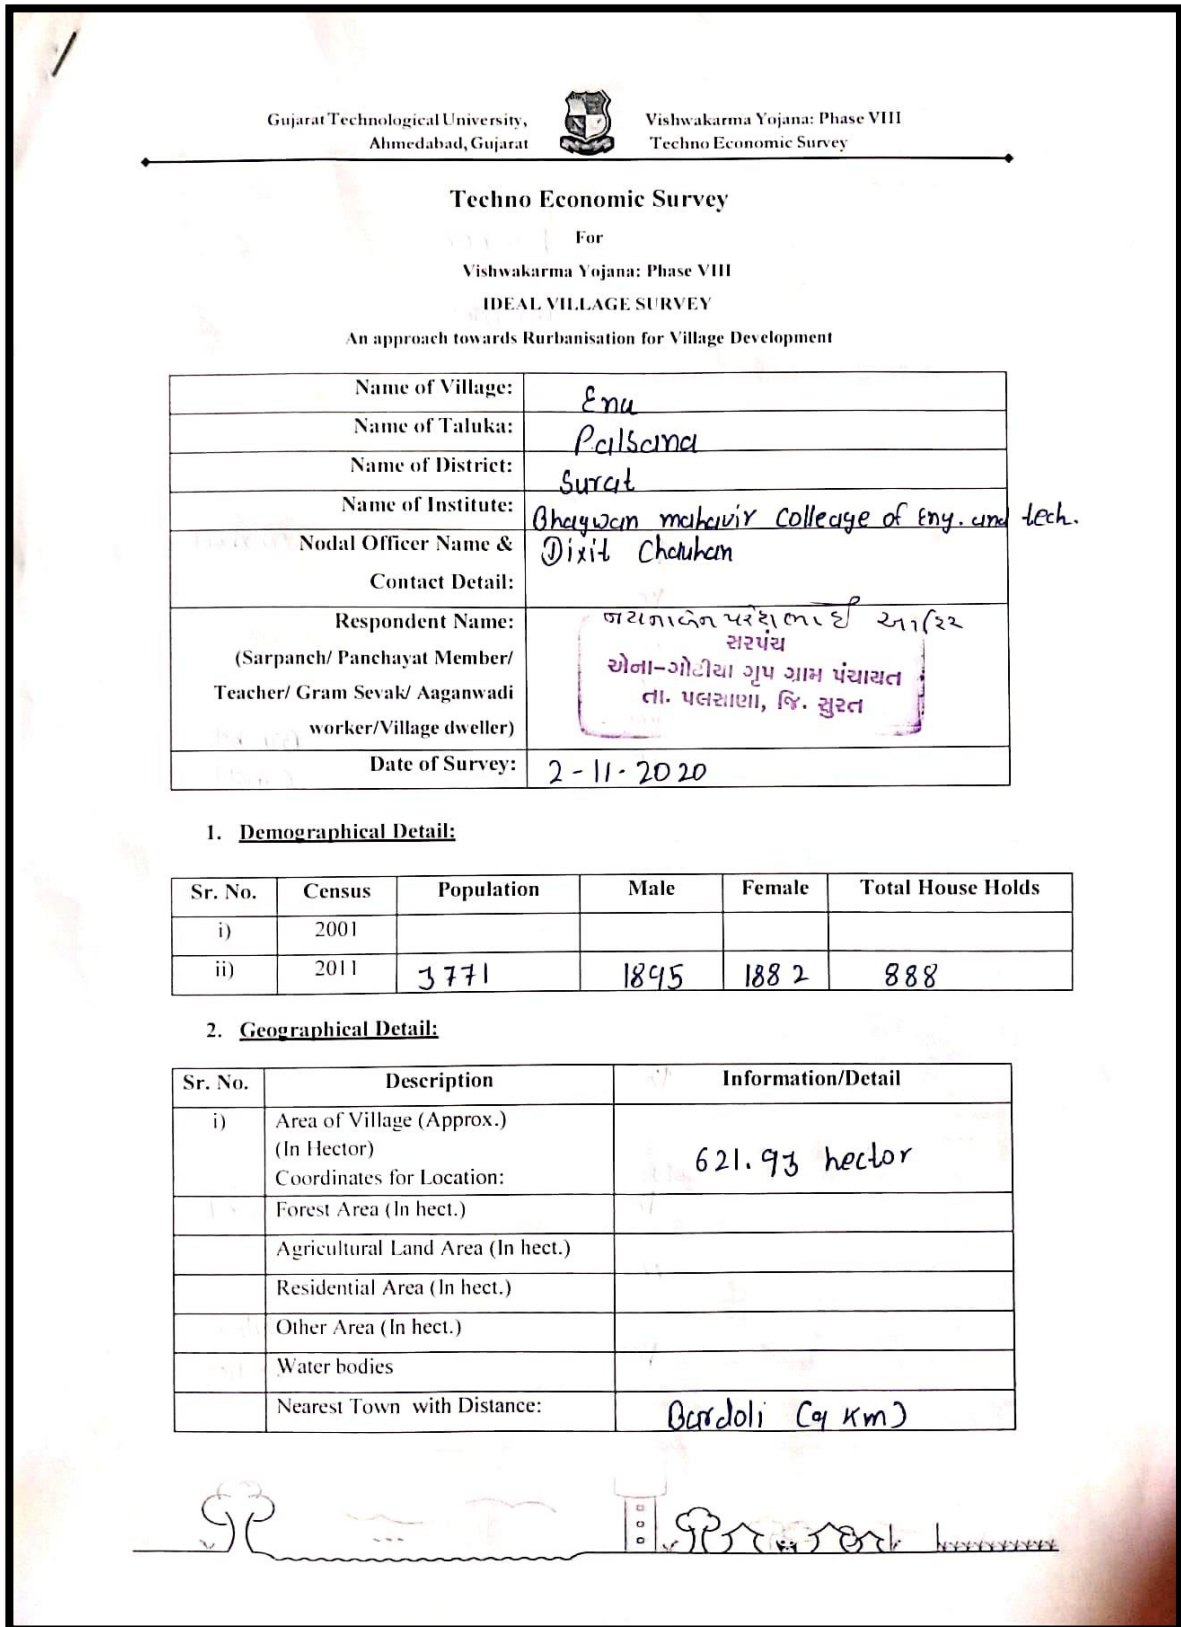 Gujarat Technological University,
Ahmedabad, Gujarat
Vishwakarma Yojana: Phase VIII
Techno Economic Survey
Techno Economic Survey
For
Vishwakarma Yojana: Phase VIII
IDEAL VILLAGE SURVEY
An approach towards Rurbanisation for Village Development
Name of Village: Ena
Name of Taluka: Palsana
Name of District: Surat
Name of Institute: Bhagwan mahavir Colleage of Eng. and tech.
Nodal Officer Name & Dixit Chauhan
Contact Detail:
Respondent Name:
(Sarpanch/ Panchayat Member/
Teacher/ Gram Sevak/ Aaganwadi
worker/Village dweller)
સરપંચ
એના-ગોટીયા ગૃપ ગ્રામ પંચાયત
તા. પલસાણા, જિ. સુરત
Date of Survey: 2-11-2020
1. Demographical Detail:
Sr. No. Census Population Male Female Total House Holds
i) 2001
ii) 2011 3771 1895 1882 888
2. Geographical Detail:
Sr. No. Description Information/Detail
i) Area of Village (Approx.)
(In Hector)
Coordinates for Location:
621.93 hector
Forest Area (In hect.)
Agricultural Land Area (In hect.)
Residential Area (In hect.)
Other Area (In hect.)
Water bodies
Nearest Town with Distance: Bardoli (9 Km)